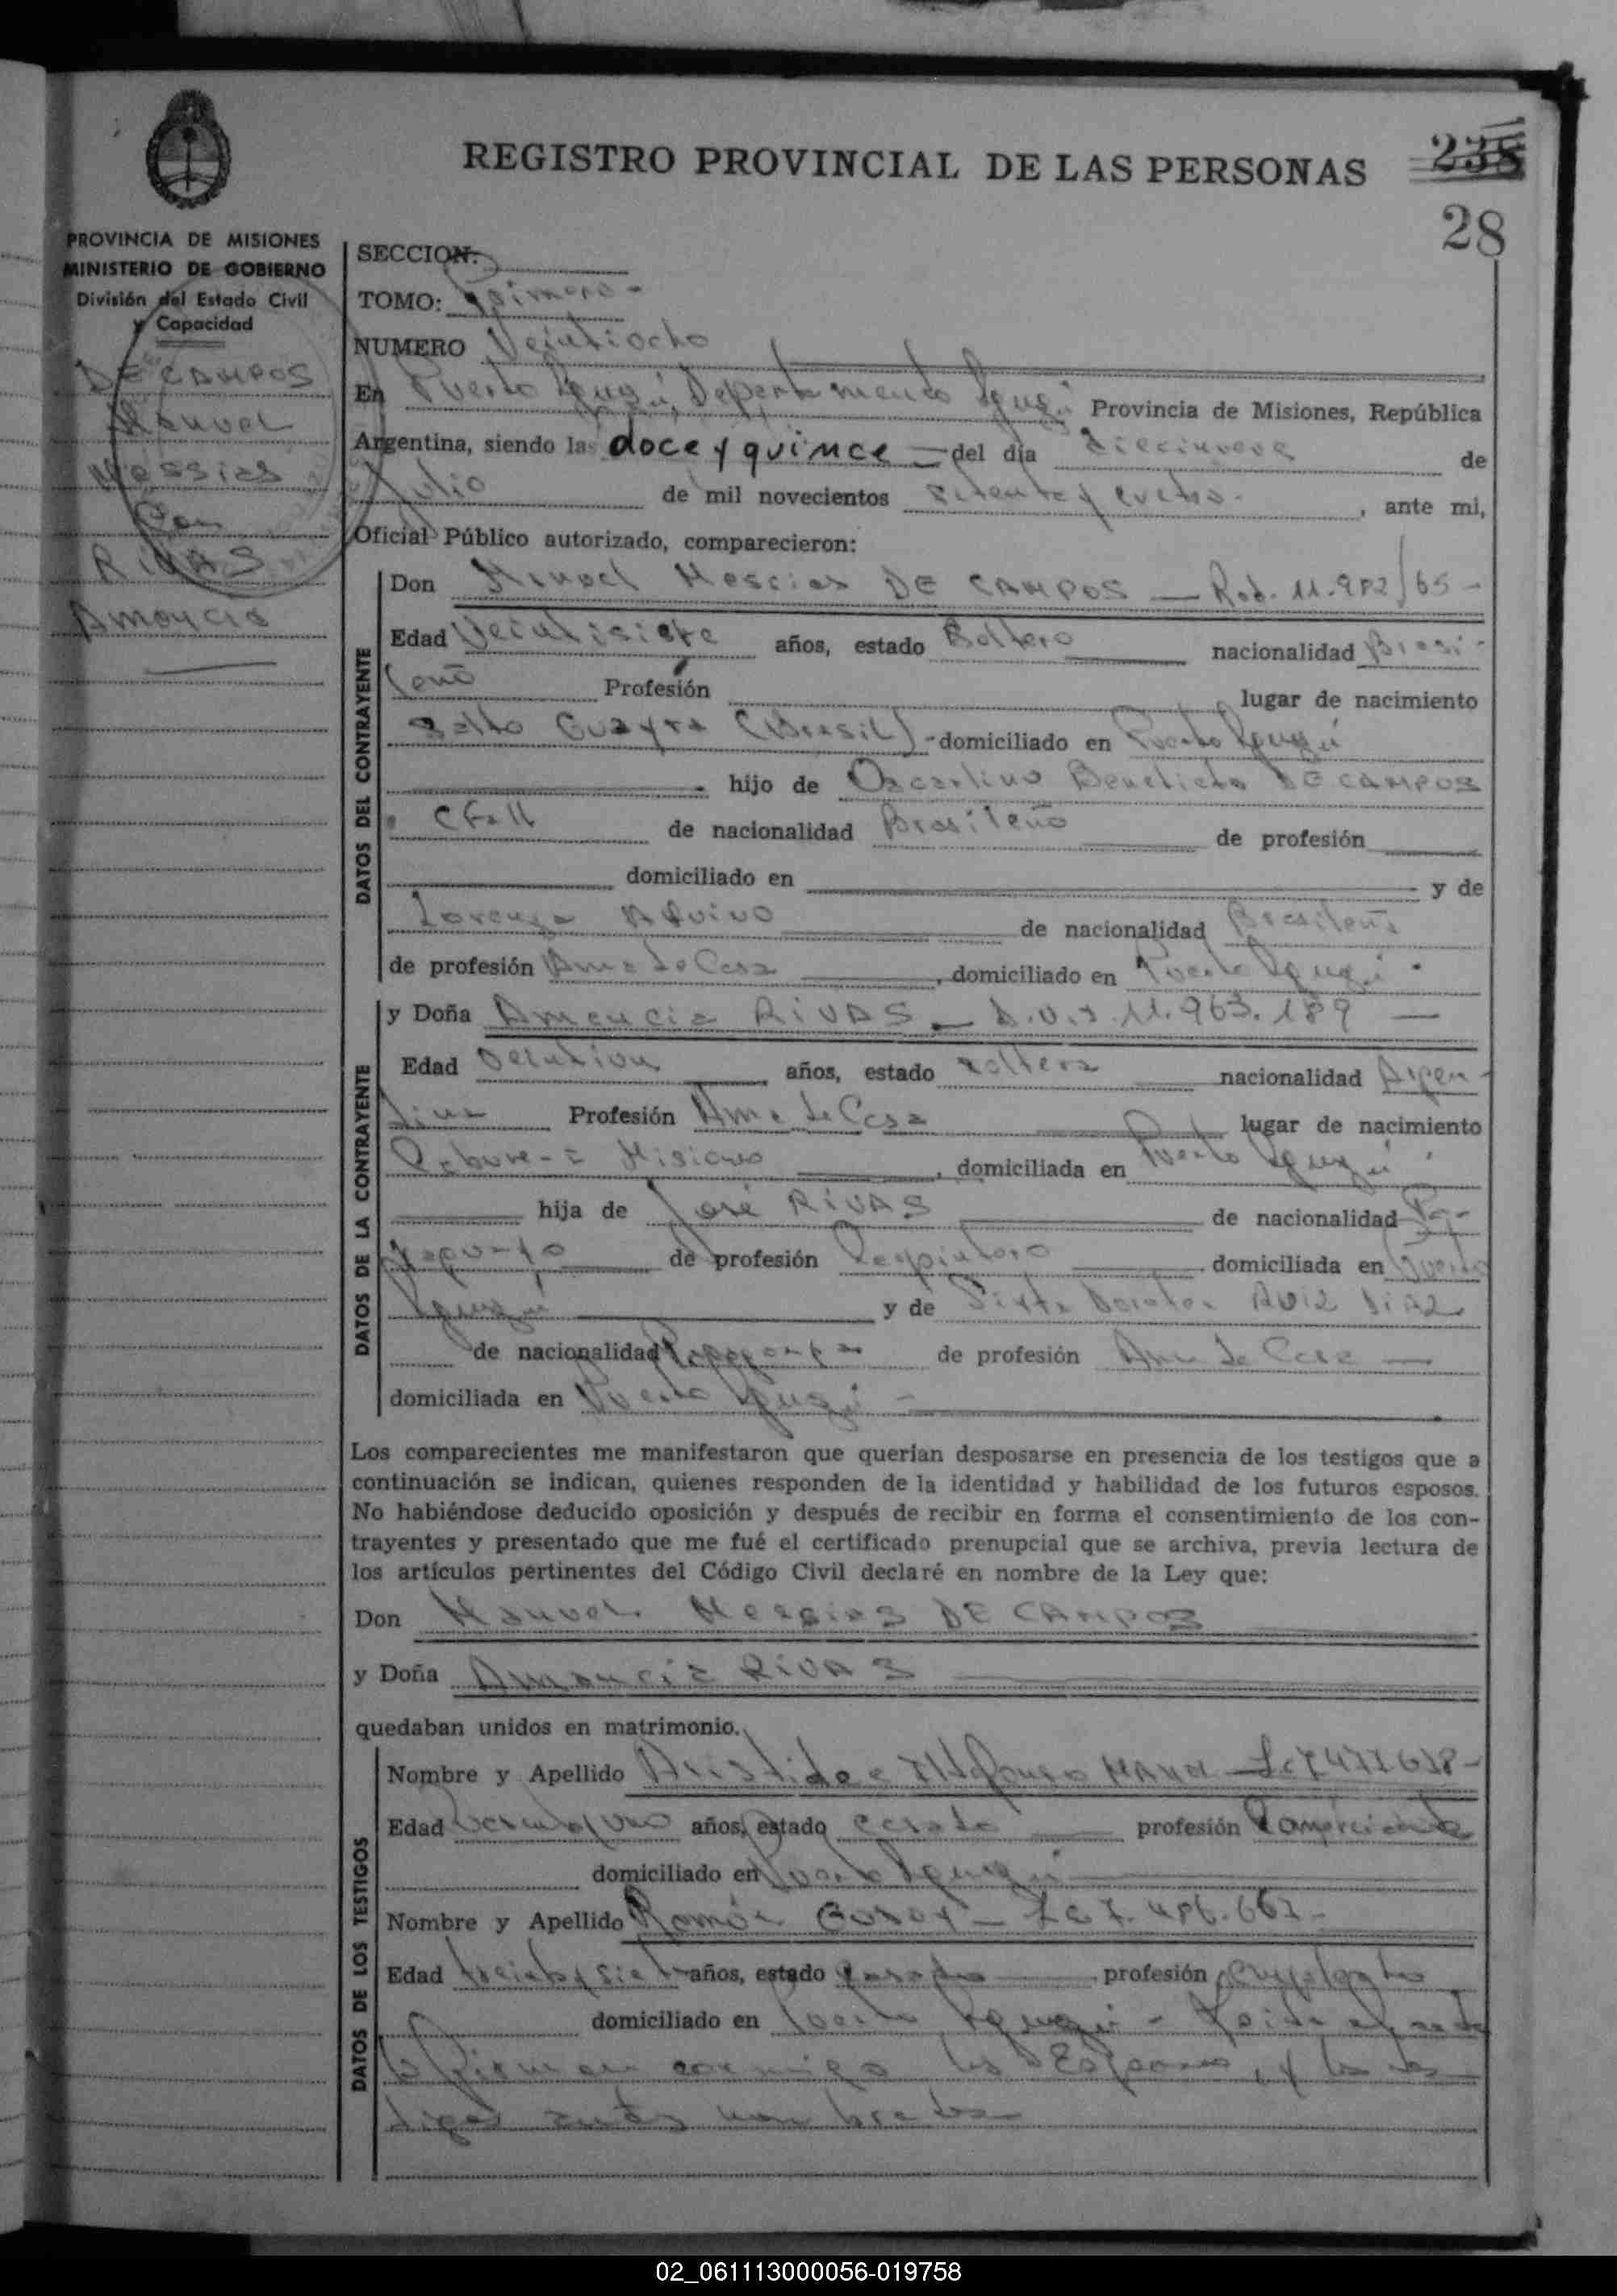 REGISTRO PROVINCIAL DE LAS PERSONAS
238
28
PROVINCIA DE MISIONES
MINISTERIO DE GOBIERNO
División del Estado Civil
y Capacidad
DE CAMPOS
Manuel
Messias
Con
RIVAS
Amancia
SECCION:
TOMO: Primero -
NUMERO Veintiocho
En Puerto Iguazú, Departamento Iguazú Provincia de Misiones, República
Argentina, siendo las doce y quince - del día diecinueve de
Julio de mil novecientos setenta y cuatro - , ante mi,
Oficial Público autorizado, comparecieron:
DATOS DEL CONTRAYENTE
Don Manuel Messias DE CAMPOS - Rad. 11.982/65 -
Edad Veintisiete años, estado Soltero nacionalidad Brasi-
leño Profesión lugar de nacimiento
Salto Guayra (Brasil) - domiciliado en Puerto Iguazú
hijo de Oscarlino Benedicto DE CAMPOS
de nacionalidad Brasileño de profesión
domiciliado en y de
Lorenza de nacionalidad Brasileña
de profesión Ama de Casa , domiciliado en Puerto Iguazú
DATOS DE LA CONTRAYENTE
y Doña Amancia RIVAS - D.N.I. 11.963.189 -
Edad años, estado soltera nacionalidad Argen-
tina Profesión Ama de Casa lugar de nacimiento
Misiones , domiciliada en Puerto Iguazú
hija de José RIVAS de nacionalidad Pa-
raguayo de profesión domiciliada en Puerto
Iguazú y de Sixta RUIZ DIAZ
de nacionalidad Paraguaya de profesión Ama de Casa -
domiciliada en Puerto Iguazú -
Los comparecientes me manifestaron que querían desposarse en presencia de los testigos que a
continuación se indican, quienes responden de la identidad y habilidad de los futuros esposos.
No habiéndose deducido oposición y después de recibir en forma el consentimiento de los con-
trayentes y presentado que me fué el certificado prenupcial que se archiva, previa lectura de
los artículos pertinentes del Código Civil declaré en nombre de la Ley que:
Don Manuel Messias DE CAMPOS
y Doña Amancia RIVAS
quedaban unidos en matrimonio.
DATOS DE LOS TESTIGOS
Nombre y Apellido
Edad años, estado casado profesión Comerciante
domiciliado en Puerto Iguazú
Nombre y Apellido Ramón Godoy -
Edad treinta y siete años, estado casado profesión Empleado
domiciliado en Puerto Iguazú - Leída el acta
la firman conmigo los Esposos, y los tes-
tigos antes nombrados
02_061113000056-019758